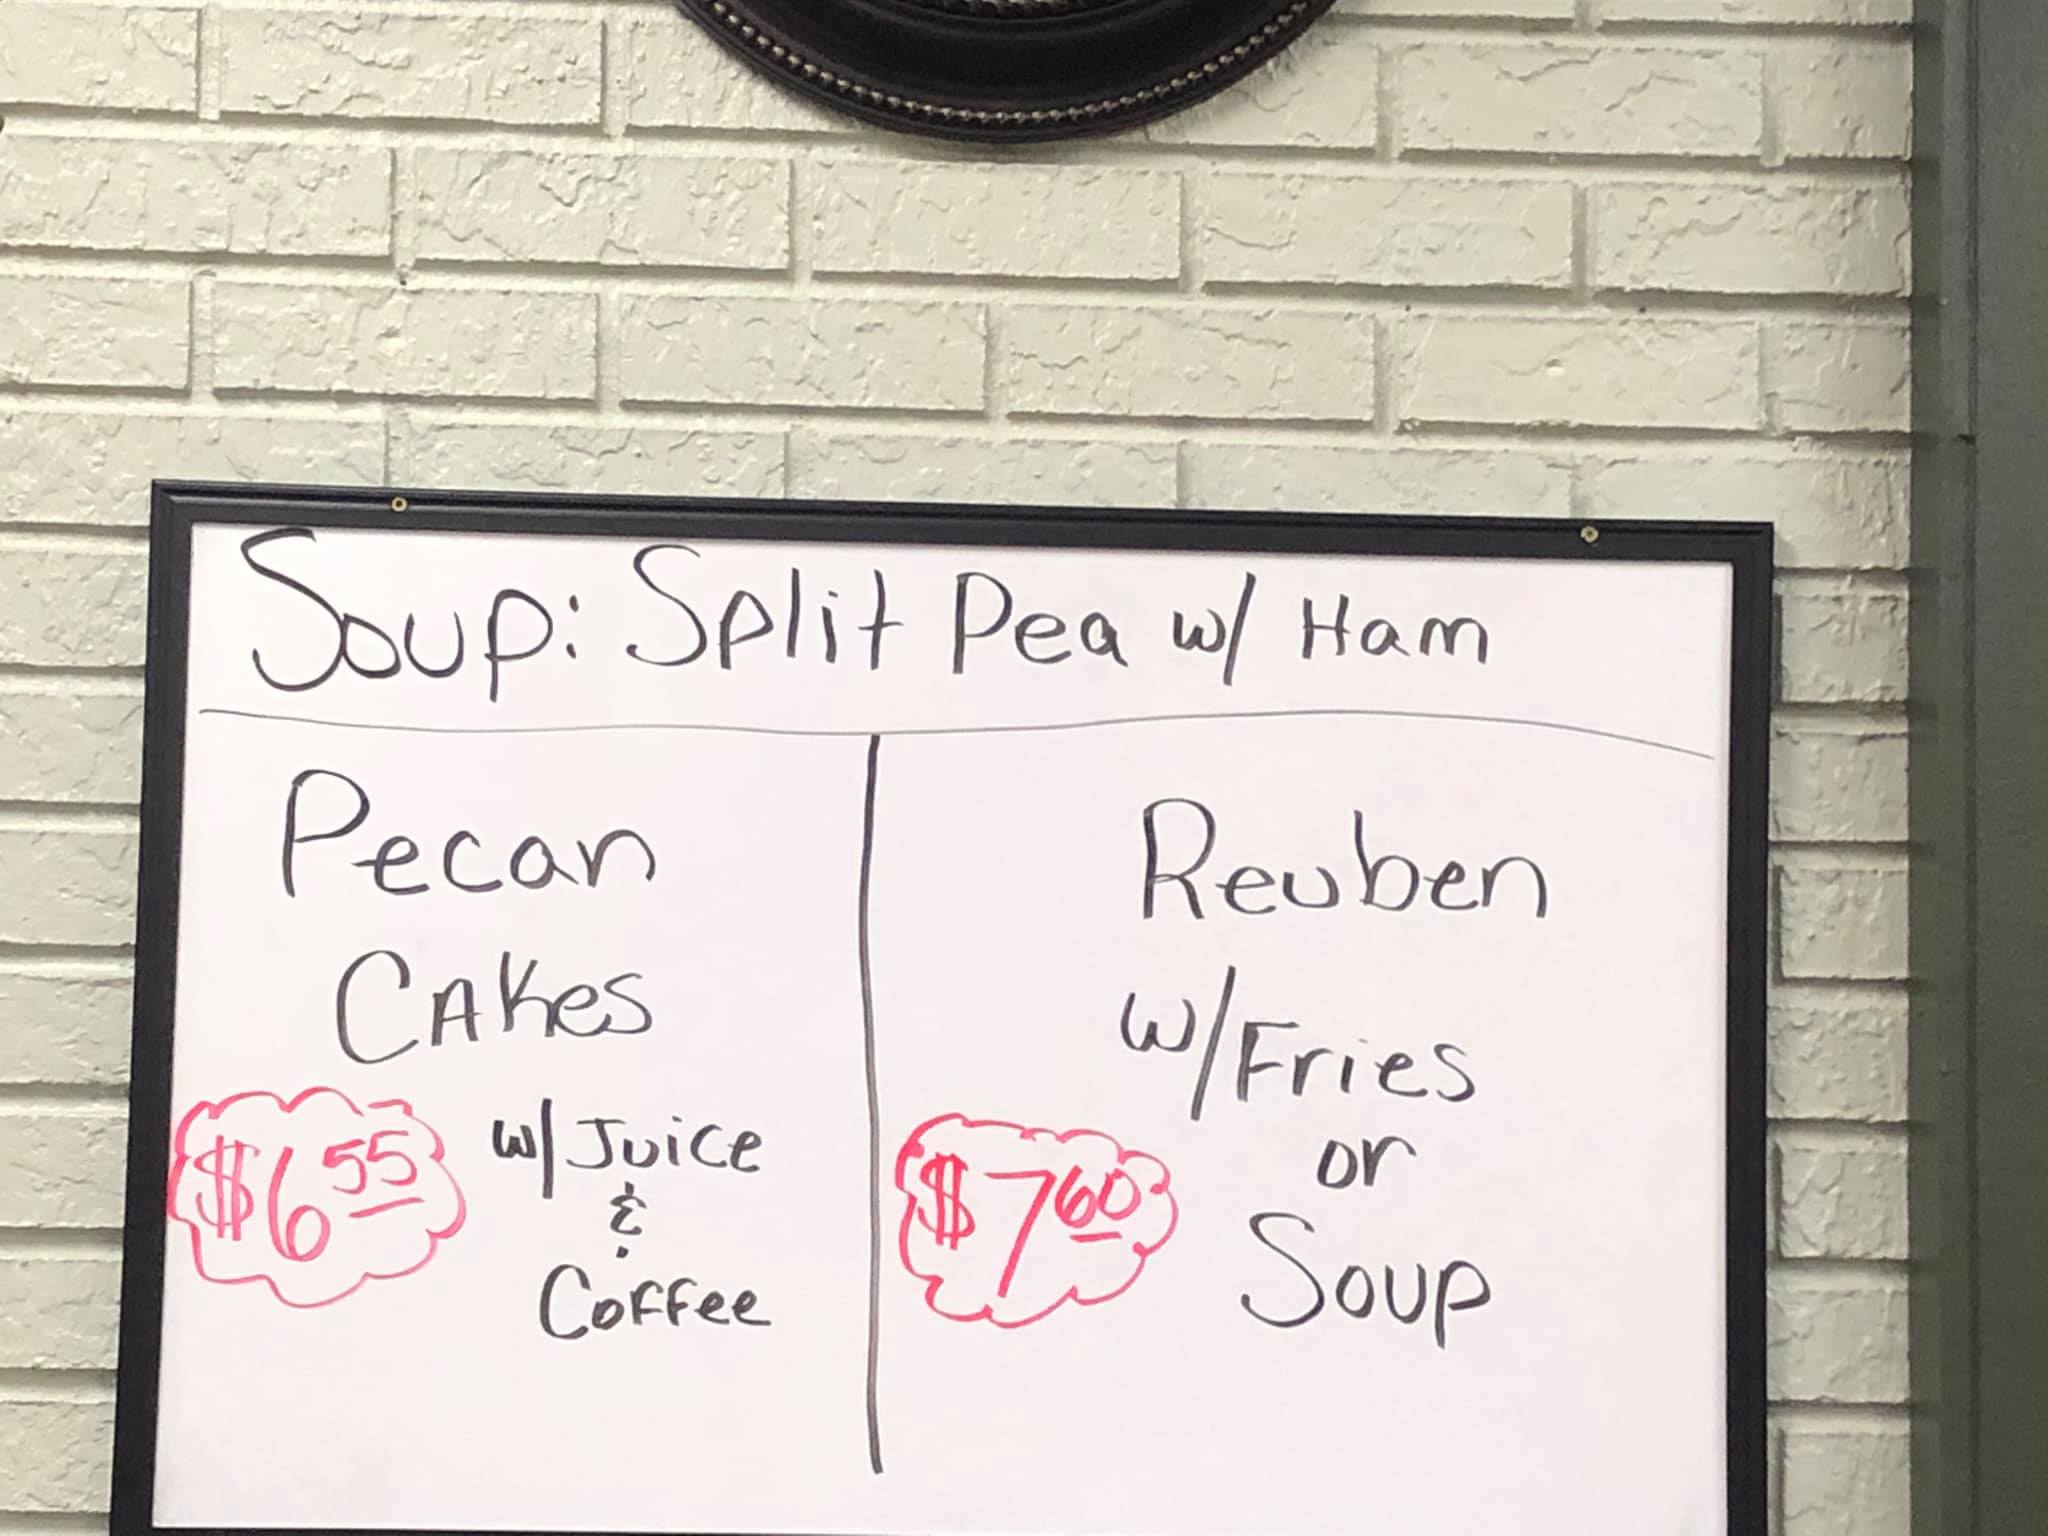 Soup: Split Pea w/ Ham
Pecan
Cakes
w/ Juice
&
Coffee
$6.55
Reuben
w/ Fries
or
Soup
$7.60